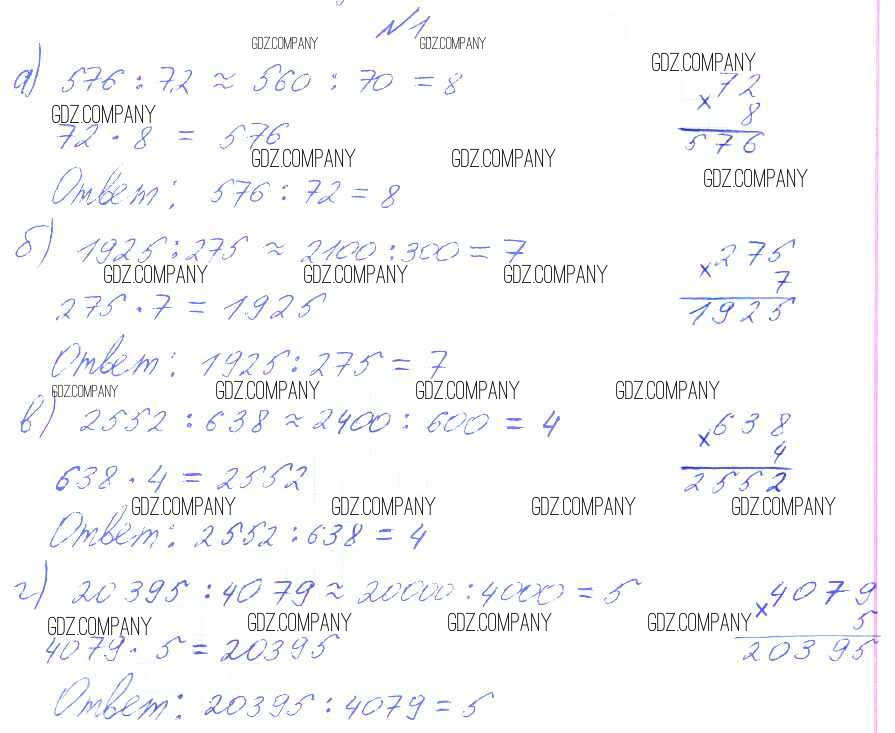 №1
GDZ.COMPANY GDZ.COMPANY GDZ.COMPANY
а) 576 : 72 ≈ 560 : 70 = 8
× 72
GDZ.COMPANY
8
72 · 8 = 576
576
GDZ.COMPANY GDZ.COMPANY GDZ.COMPANY
Ответ: 576 : 72 = 8
б) 1925 : 275 ≈ 2100 : 300 = 7
× 275
GDZ.COMPANY GDZ.COMPANY GDZ.COMPANY
7
275 · 7 = 1925
1925
Ответ: 1925 : 275 = 7
GDZ.COMPANY GDZ.COMPANY GDZ.COMPANY GDZ.COMPANY
в) 2552 : 638 ≈ 2400 : 600 = 4
× 638
4
638 · 4 = 2552
2552
GDZ.COMPANY GDZ.COMPANY GDZ.COMPANY GDZ.COMPANY
Ответ: 2552 : 638 = 4
г) 20395 : 4079 ≈ 20000 : 4000 = 5
× 4079
GDZ.COMPANY GDZ.COMPANY GDZ.COMPANY GDZ.COMPANY
5
4079 · 5 = 20395
20395
Ответ: 20395 : 4079 = 5